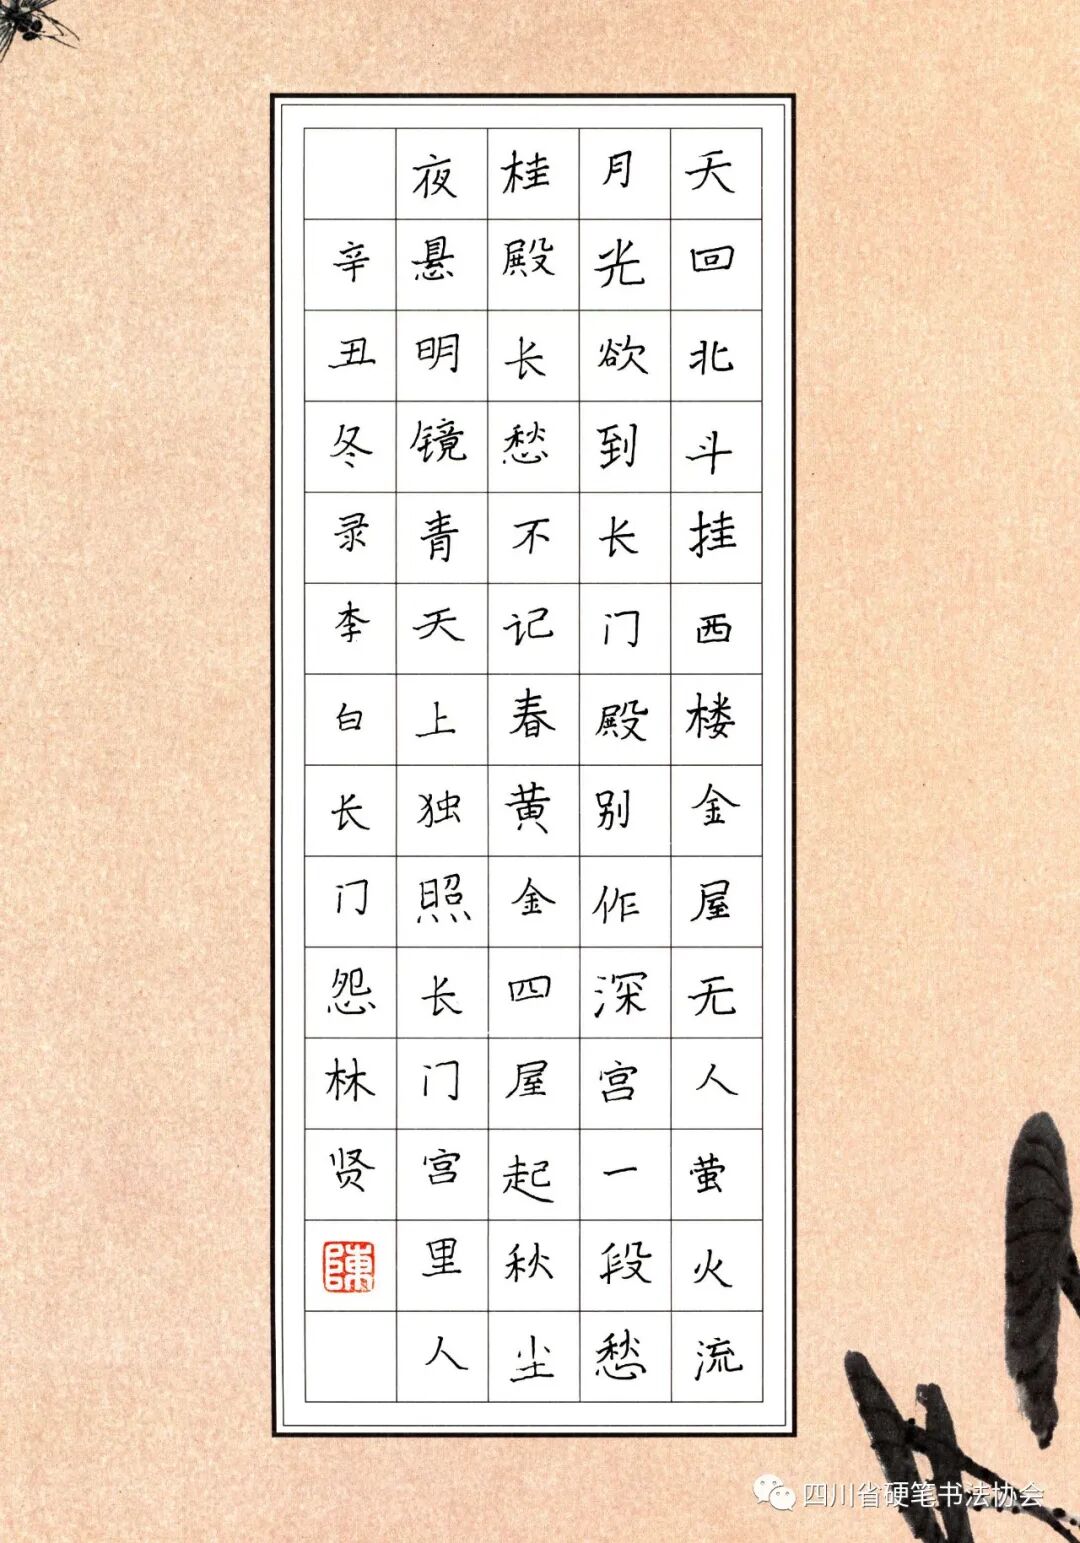 天回北斗挂西楼金屋无人萤火流
月光欲到长门殿别作深宫一段愁
桂殿长愁不记春黄金四屋起秋尘
夜悬明镜青天上独照长门宫里人
辛丑冬录李白长门怨林贤
陳
四川省硬笔书法协会